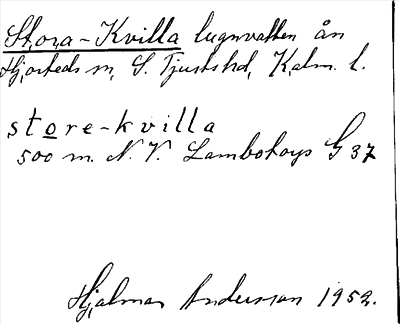 Stora-Kvilla lugnvatten ån
Hjorteds sn, S. Tjusts hd, Kalm. l.
store-kvilla
500 m. N. V. Lambohovs G 37
Hjalmar Andersson 1952.